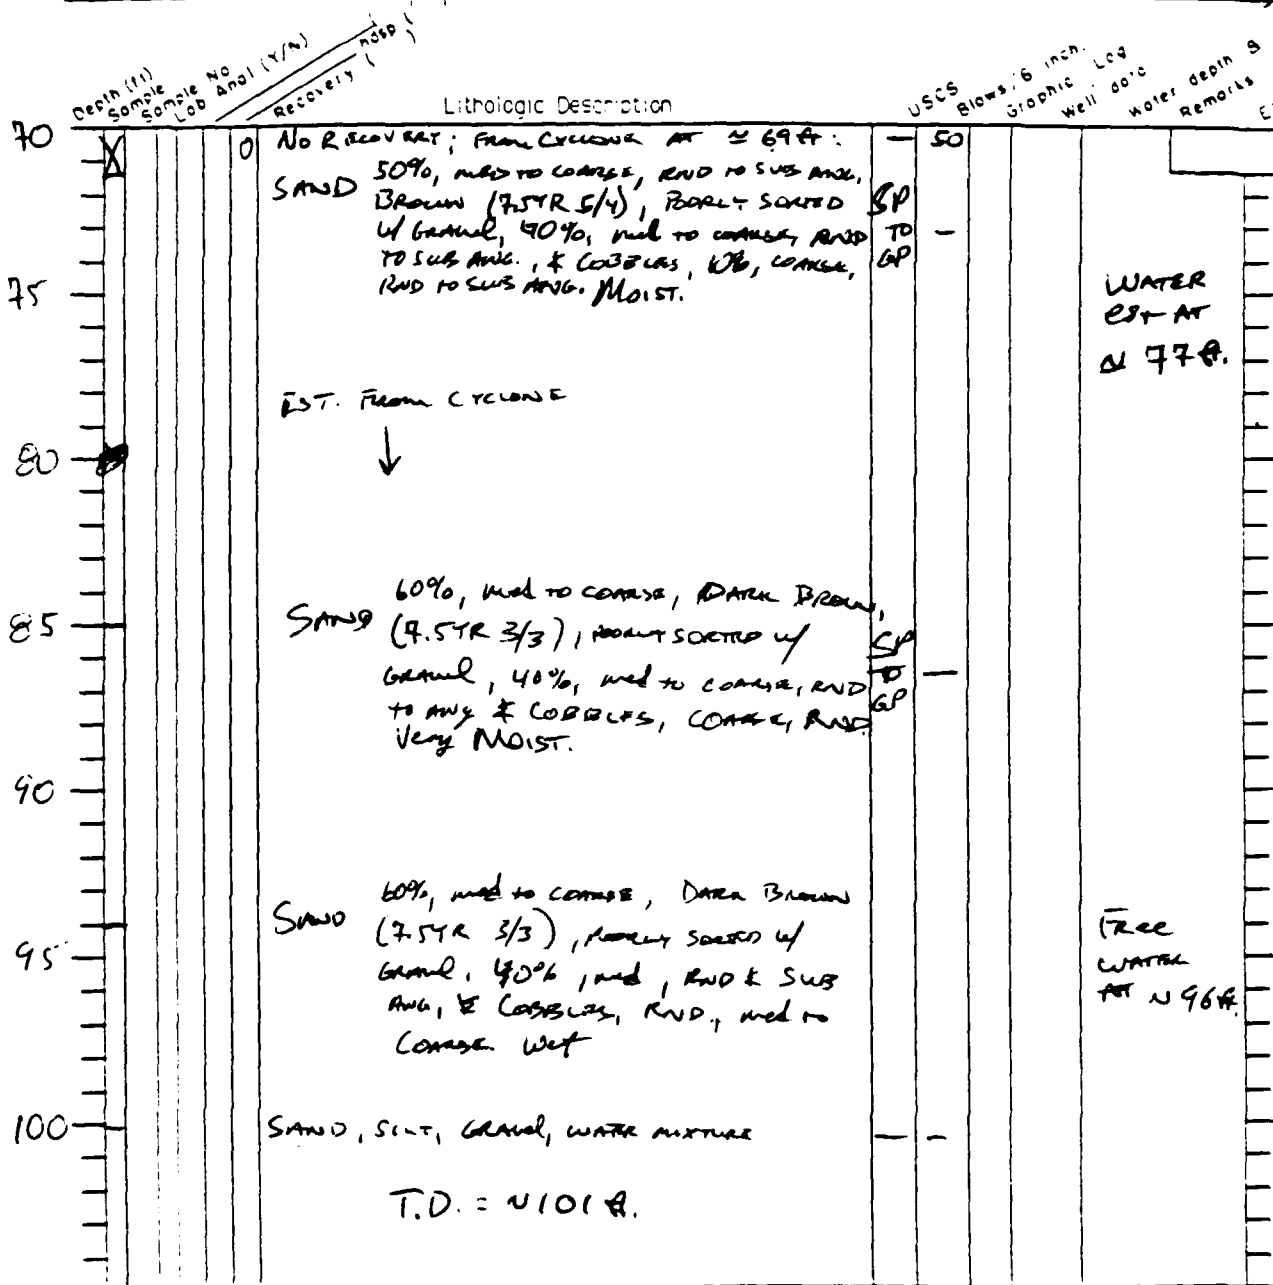 Depth (ft)
Sample
Sample No
Lab Anal (Y/N)
Recovery (
)
Lithologic Description
USCS
Blows/6 inch.
Graphic Log
Well data
Water depth &
Remarks
E
70
0
NO RECOVERY; FROM CYCLONE AT ≃ 69 ft:
—
50
SAND
50%, MED TO COARSE, RND TO SUB ANG,
BROWN (7.5YR 5/4), POORLY SORTED
W/ GRAVEL, 40%, med to COARSE, RND
TO SUB ANG., & COBBLES, 10%, COARSE,
RND TO SUB ANG. MOIST.
SP
TO
GP
—
75
WATER
est AT
~ 77 ft.
EST. FROM CYCLONE
↓
80
85
SAND
60%, med TO COARSE, DARK BROWN,
(7.5YR 3/3), POORLY SORTED W/
GRAVEL, 40%, med to COARSE, RND
to ang & COBBLES, COARSE, RND.
Very MOIST.
SP
TO
GP
—
90
SAND
60%, med to COARSE, DARK BROWN
(7.5YR 3/3), POORLY SORTED W/
GRAVEL, 40%, med, RND & SUB
ANG, & COBBLES, RND., med to
COARSE. Wet
95
Free
WATER
AT ~ 96 ft.
100
SAND, SILT, GRAVEL, WATER MIXTURE
—
-
T.D. = ~101 ft.